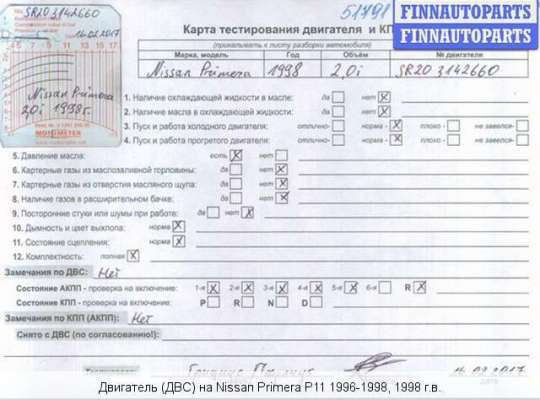 SR20 3142660
14.02.2017
5 7 9 11 13 15 17
Nissan Primera
2,0i 1998г.
MOTOMETER
51791
FINNAUTOPARTS
FINNAUTOPARTS
Карта тестирования двигателя и КП
(прикалывать к листу разборки автомобиля)
Марка, модель Год Объём № двигателя
Nissan Primera 1998 2,0i SR20 3142660
1. Наличие охлаждающей жидкости в масле: да нет X
2. Наличие масла в охлаждающей жидкости: да нет
3. Пуск и работа холодного двигателя: отлично- норма - X плохо - не завелся-
4. Пуск и работа прогретого двигателя: отлично- норма - X плохо - не завелся-
5. Давление масла: есть X нет
6. Картерные газы из маслозаливной горловины: да нет X
7. Картерные газы из отверстия масляного щупа: да нет X
8. Наличие газов в расширительном бачке: да нет X
9. Посторонние стуки или шумы при работе: да нет X
10. Дымность и цвет выхлопа: норма X
11. Состояние сцепления: норма X
12. Комплектность: полная X
Замечания по ДВС: Нет
Состояние АКПП - проверка на включение: 1-я X 2-я X 3-я X 4-я X 5-я X 6-я R X
Состояние КПП - проверка на включение: P R N D
Замечания по КПП (АКПП): Нет
Снято с ДВС (по согласованию!):
14.02.2017
Двигатель (ДВС) на Nissan Primera P11 1996-1998, 1998 г.в.